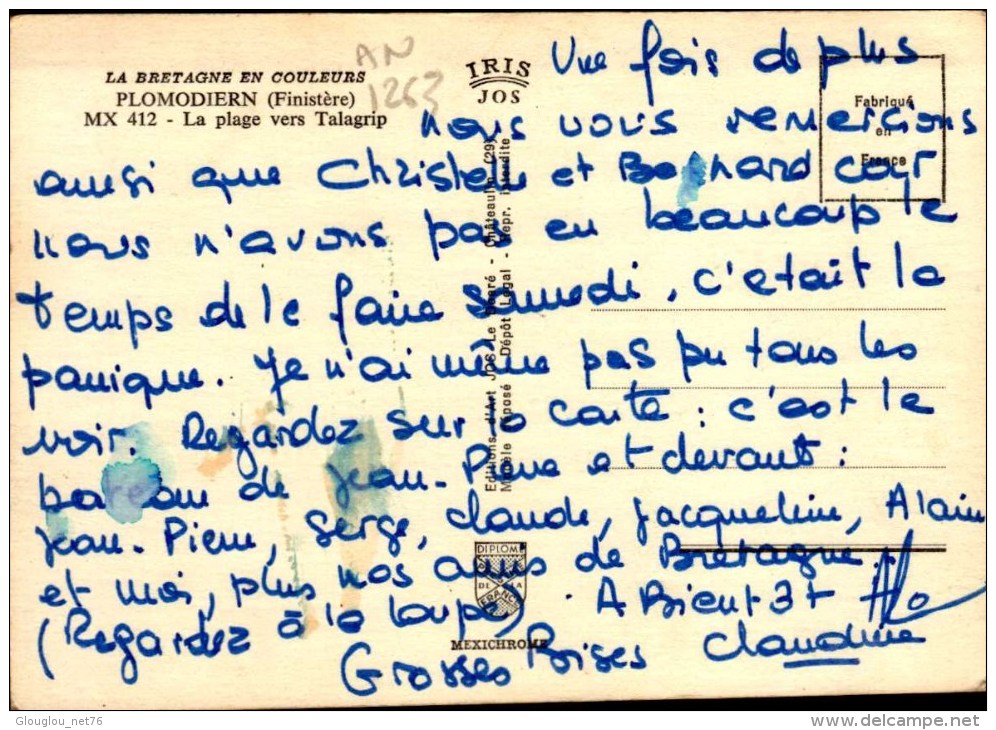 LA BRETAGNE EN COULEURS
PLOMODIERN (Finistère)
MX 412 - La plage vers Talagrip
AN
1263
IRIS
JOS
Fabriqué
en
France
Une fois de plus
nous vous remercions
ainsi que Christelle et Bernard car
nous n'avons pas eu beaucoup le
temps de le faire samedi, c'etait la
panique. Je n'ai même pas pu tous les
voir. Regardez sur la carte : c'est le
bateau de Jean-Pierre et devant :
Jean-Pierre, Serge, Claude, Jacqueline, Alain
et moi, plus nos amis de Bretagne.
(Regardez à la loupe) A Bientôt
Grosses Bises Claudine
Editions d'Art JOS Le Doaré - Châteaulin (29)
Modèle Déposé - Dépôt Légal - Repr. interdite
DIPLOME
DE LA
FRANCE
MEXICHROME
Glouglou_net76
delcampe.net